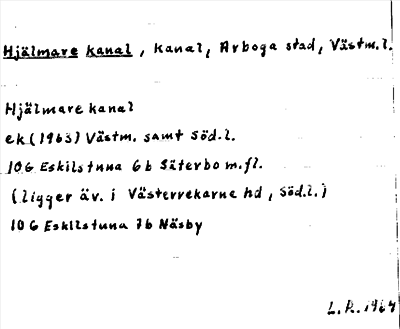 Hjälmare kanal, kanal, Arboga stad, Västm.l.
Hjälmare kanal
ek (1963) Västm. samt Söd.l.
10G Eskilstuna 6b Säterbo m.fl.
(ligger äv. i Västerrekarne hd, Söd.l.)
10G Eskilstuna 7b Näsby
L.R. 1964